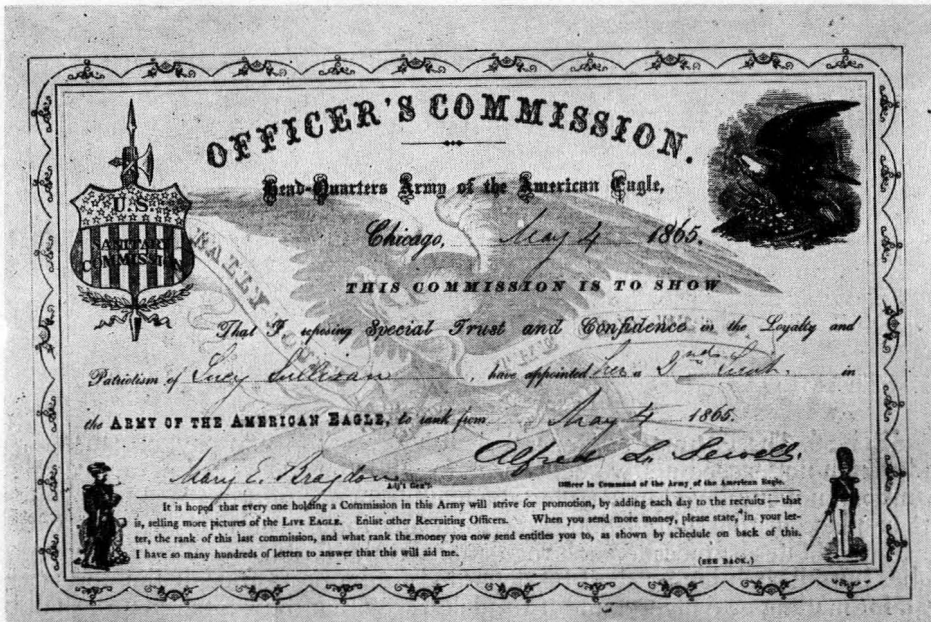 OFFICER'S COMMISSION.
Head-Quarters Army of the American Eagle,
Chicago, May 4 1865.
U.S.
SANITARY
COMMISSION
RALLY
THIS COMMISSION IS TO SHOW
That I, reposing Special Trust and Confidence in the Loyalty and
Patriotism of Lucy Sullivan, have appointed her a 2nd Lieut. in
the ARMY OF THE AMERICAN EAGLE, to rank from May 4 1865.
Alfred L. Sewell.
Mary E. Bragdon
Adj't Gen'l. Officer in Command of the Army of the American Eagle.
It is hoped that every one holding a Commission in this Army will strive for promotion, by adding each day to the recruits — that
is, selling more pictures of the LIVE EAGLE. Enlist other Recruiting Officers. When you send more money, please state, in your let-
ter, the rank of this last commission, and what rank the money you now send entitles you to, as shown by schedule on back of this.
I have so many hundreds of letters to answer that this will aid me.
(SEE BACK.)